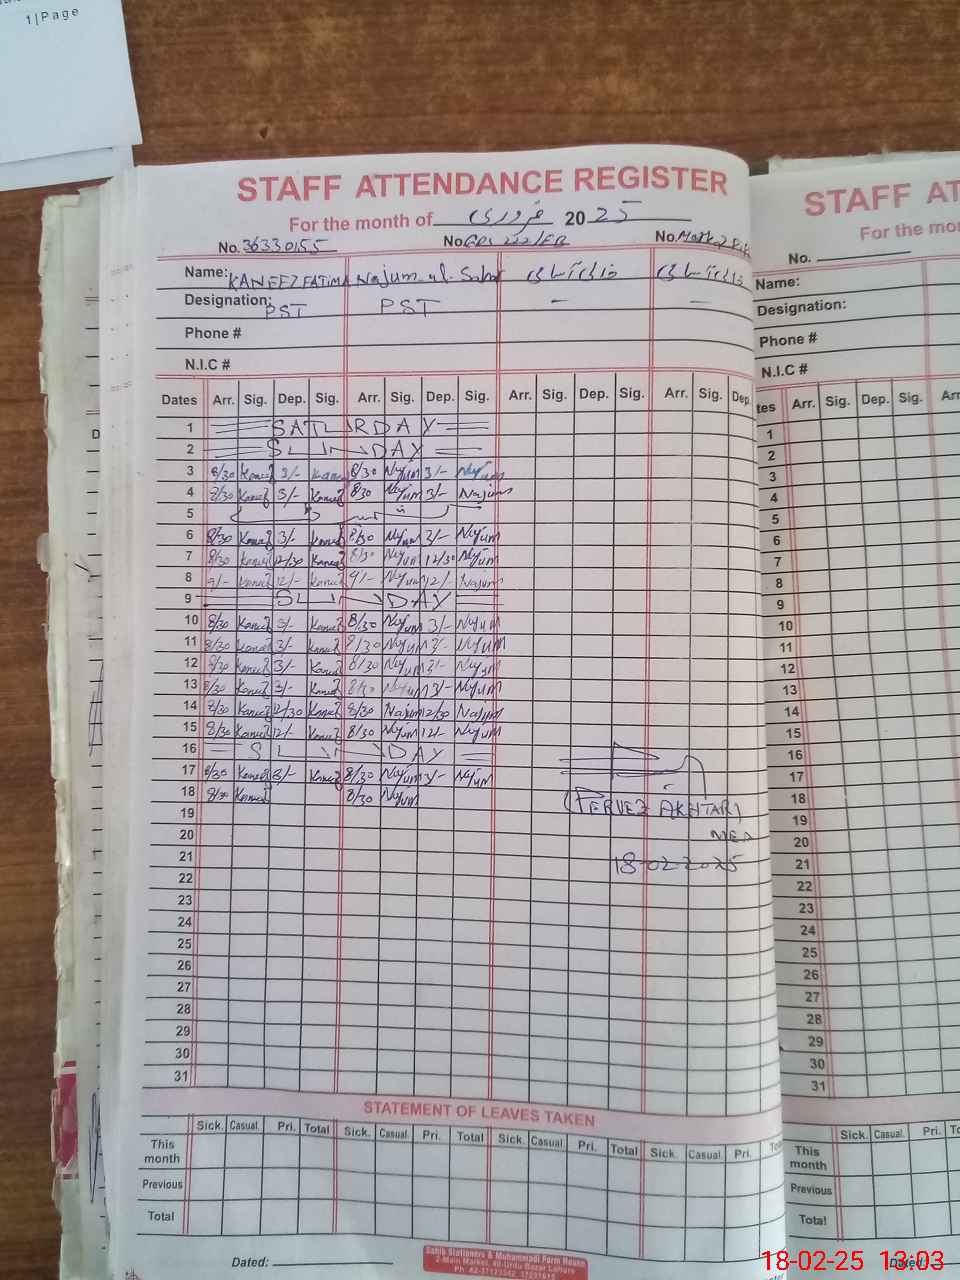 1|Page
STAFF ATTENDANCE REGISTER
For the month of فروری 2025
No. 36330155 No. No.
Name: KANEEZ FATIMA Najum ul Sahar خالی آسامی خالی آسامی
Designation: PST PST — —
Phone #
N.I.C #
Dates Arr. Sig. Dep. Sig. Arr. Sig. Dep. Sig. Arr. Sig. Dep. Sig. Arr. Sig. Dep.
1 SATURDAY
2 SUNDAY
3 8/30 Kaneez 3/- Kaneez 8/30 Najum 3/- Najum
4 8/30 Kaneez 3/- Kaneez 8/30 Najum 3/- Najum
5
6 8/30 Kaneez 3/- Kaneez 8/30 Najum 3/- Najum
7 8/30 Kaneez 12/30 Kaneez 8/30 Najum 12/30 Najum
8 9/- Kaneez 12/- Kaneez 9/- Najum 12/- Najum
9 SUNDAY
10 8/30 Kaneez 3/- Kaneez 8/30 Najum 3/- Najum
11 8/30 Kaneez 3/- Kaneez 8/30 Najum 3/- Najum
12 8/30 Kaneez 3/- Kaneez 8/30 Najum 3/- Najum
13 8/30 Kaneez 3/- Kaneez 8/30 Najum 3/- Najum
14 8/30 Kaneez 12/30 Kaneez 8/30 Najum 12/30 Najum
15 8/30 Kaneez 12/- Kaneez 8/30 Najum 12/- Najum
16 SUNDAY
17 8/30 Kaneez 3/- Kaneez 8/30 Najum 3/- Najum
18 8/30 Kaneez 8/30 Najum
(PERVEZ AKHTAR)
MEA
18-02-2025
19
20
21
22
23
24
25
26
27
28
29
30
31
STATEMENT OF LEAVES TAKEN
Sick. Casual. Pri. Total Sick. Casual. Pri. Total Sick. Casual. Pri. Total Sick. Casual. Pri.
This month
Previous
Total
Dated:
Sahib Stationers & Muhammadi Form House
2-Main Market, 40-Urdu Bazar Lahore
STAFF AT
For the mo
No.
Name:
Designation:
Phone #
N.I.C #
tes Arr. Sig. Dep. Sig.
1
2
3
4
5
6
7
8
9
10
11
12
13
14
15
16
17
18
19
20
21
22
23
24
25
26
27
28
29
30
31
Sick. Casual. Pri.
This month
Previous
Total
18-02-25 13:03